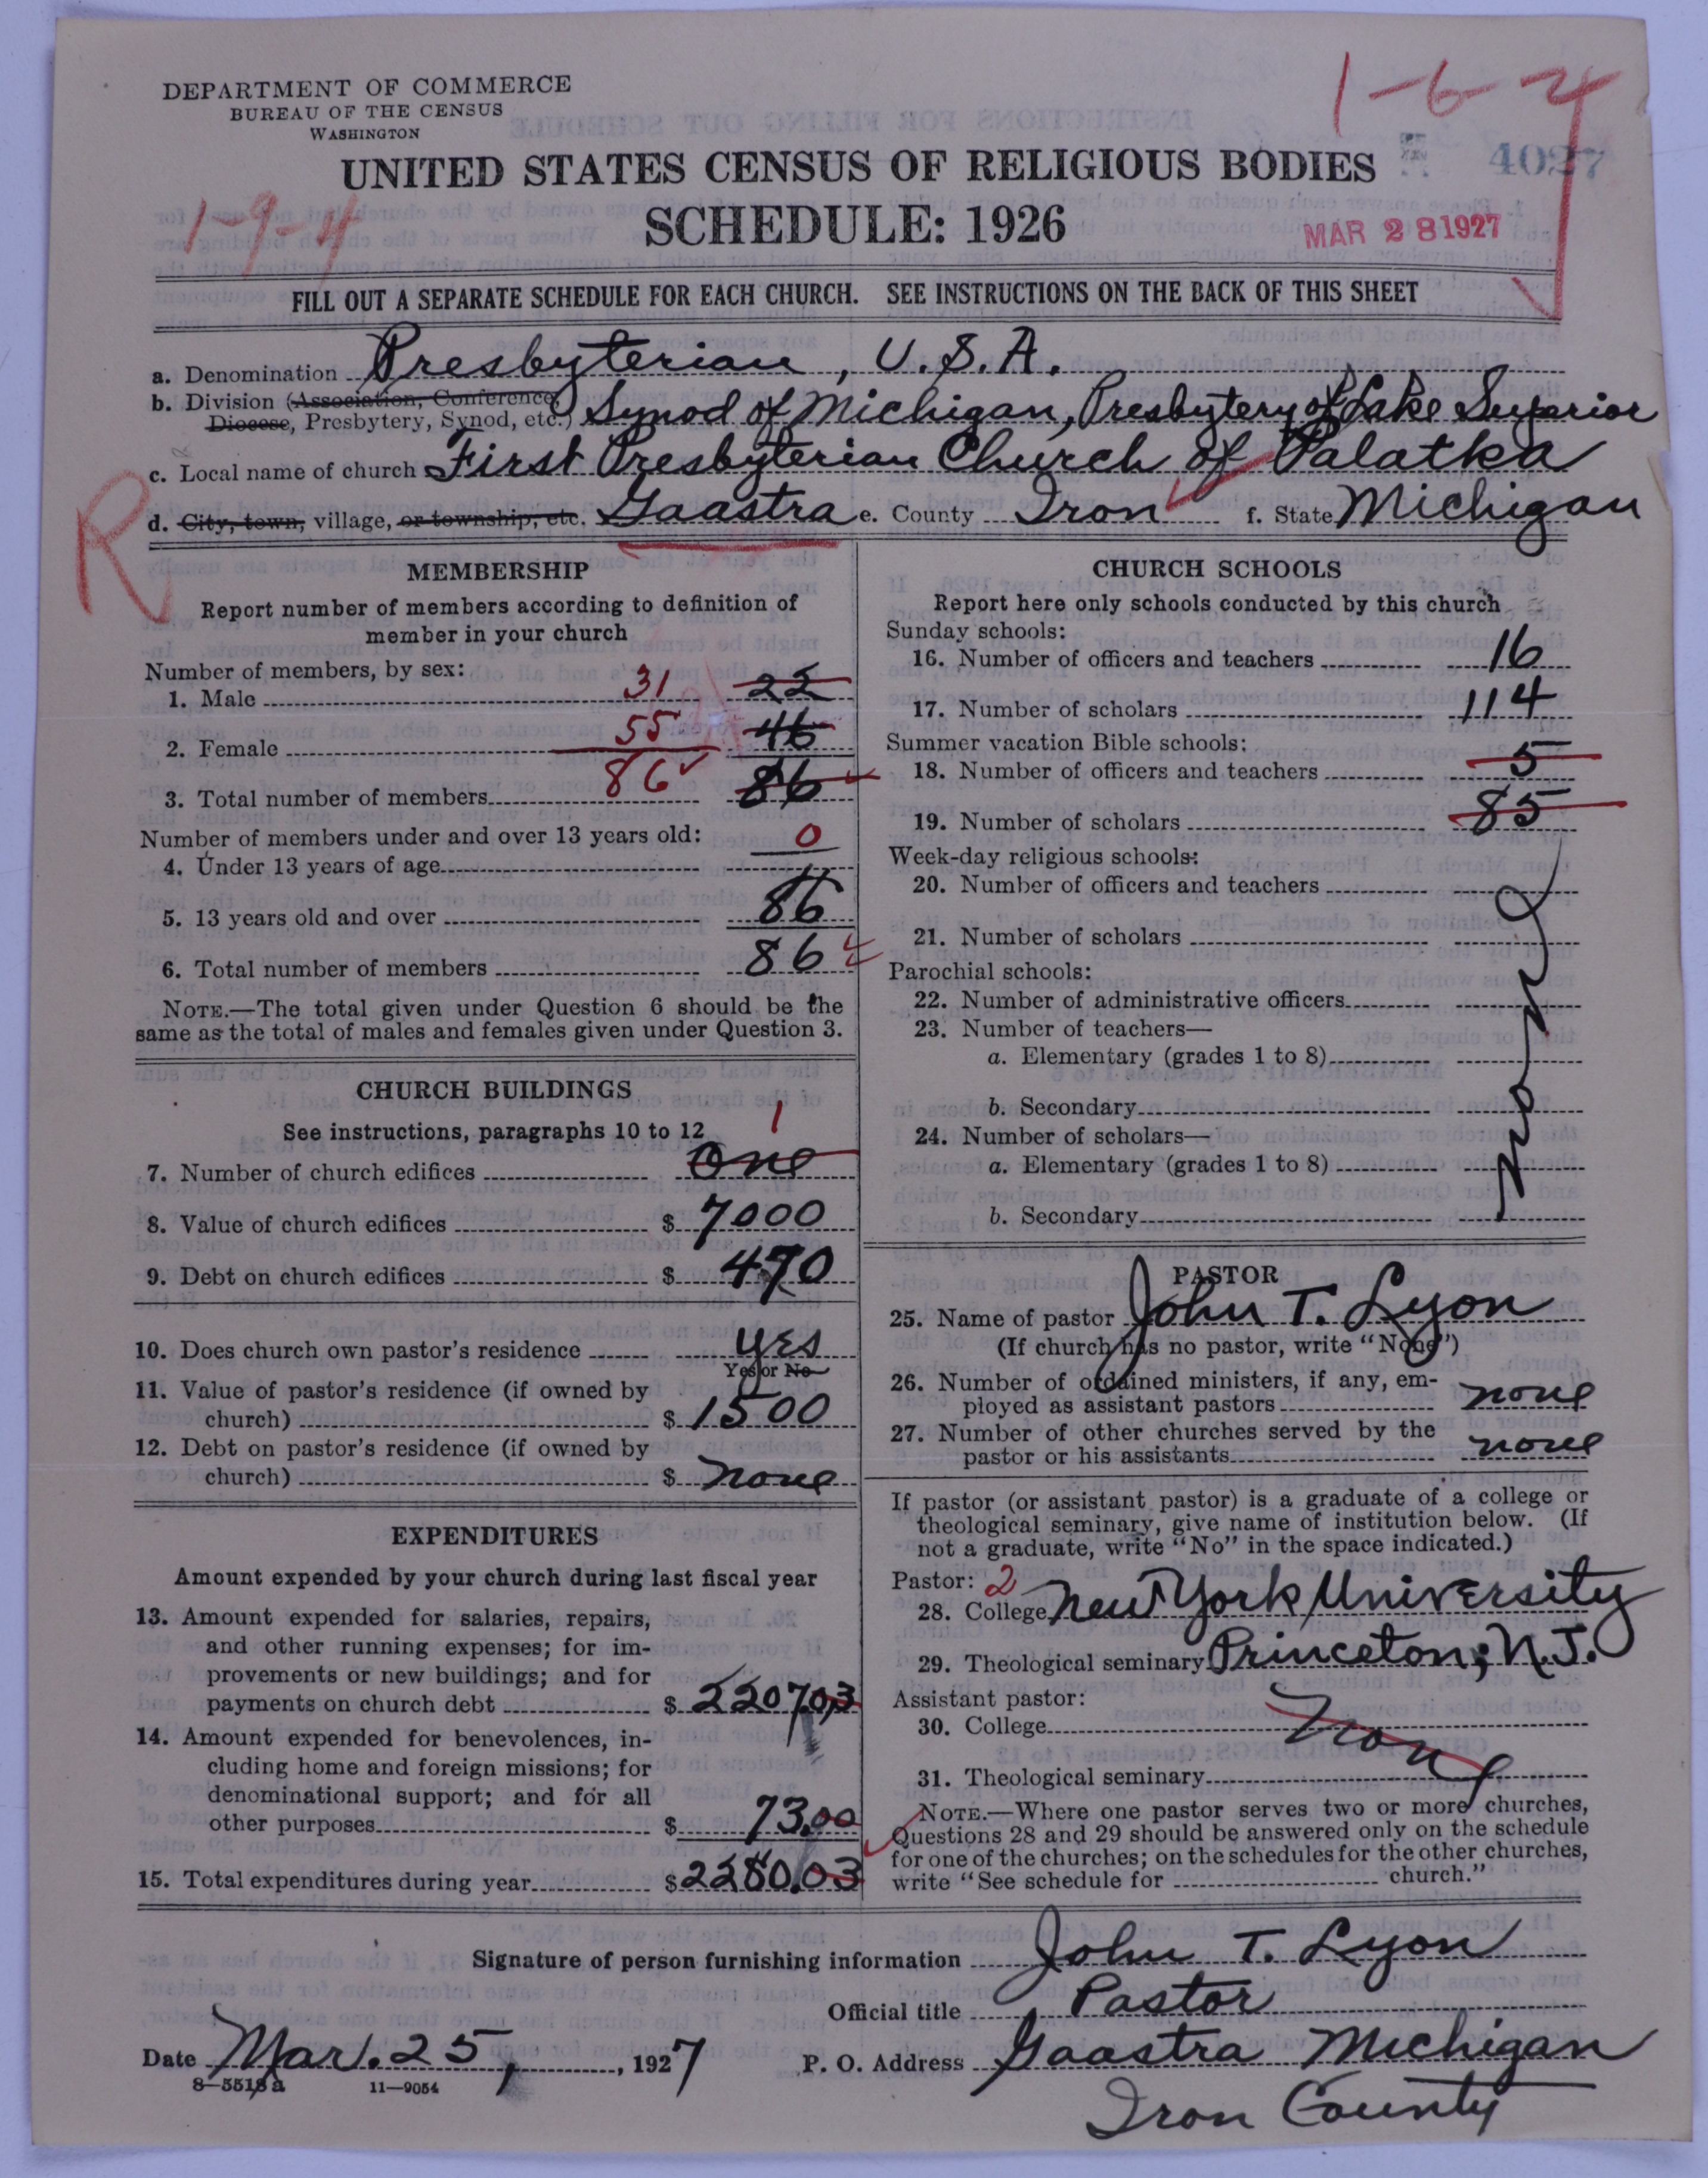 DEPARTMENT OF COMMERCE
BUREAU OF THE CENSUS
WASHINGTON
1-6-4
4027
UNITED STATES CENSUS OF RELIGIOUS BODIES
1-9-4
SCHEDULE: 1926
MAR 28 1927
FILL OUT A SEPARATE SCHEDULE FOR EACH CHURCH. SEE INSTRUCTIONS ON THE BACK OF THIS SHEET
a. Denomination Presbyterian, U.S.A.
b. Division (Association, Conference,
Diocese, Presbytery, Synod, etc.) Synod of Michigan, Presbytery of Lake Superior
c. Local name of church First Presbyterian Church of Palatka
R
d. City, town, village, or township, etc. Gaastra e. County Iron f. State Michigan
MEMBERSHIP
Report number of members according to definition of
member in your church
Number of members, by sex:
1. Male 31 22
2. Female 55 46
3. Total number of members 86 86
Number of members under and over 13 years old:
4. Under 13 years of age 0
5. 13 years old and over 86
6. Total number of members 86
NOTE.—The total given under Question 6 should be the
same as the total of males and females given under Question 3.
CHURCH BUILDINGS
See instructions, paragraphs 10 to 12
1
7. Number of church edifices One
8. Value of church edifices $ 7000
9. Debt on church edifices $ 470
10. Does church own pastor's residence yes
Yes or No
11. Value of pastor's residence (if owned by
church) $ 1500
12. Debt on pastor's residence (if owned by
church) $ none
EXPENDITURES
Amount expended by your church during last fiscal year
13. Amount expended for salaries, repairs,
and other running expenses; for im-
provements or new buildings; and for
payments on church debt $ 2207.03
14. Amount expended for benevolences, in-
cluding home and foreign missions; for
denominational support; and for all
other purposes $ 73.00
15. Total expenditures during year $ 2280.03
CHURCH SCHOOLS
Report here only schools conducted by this church
Sunday schools:
16. Number of officers and teachers 16
17. Number of scholars 114
Summer vacation Bible schools:
18. Number of officers and teachers 5
19. Number of scholars 85
Week-day religious schools:
20. Number of officers and teachers
21. Number of scholars
Parochial schools:
22. Number of administrative officers
23. Number of teachers—
a. Elementary (grades 1 to 8)
b. Secondary
24. Number of scholars—
a. Elementary (grades 1 to 8)
b. Secondary
None
PASTOR
25. Name of pastor John T. Lyon
(If church has no pastor, write "None")
26. Number of ordained ministers, if any, em-
ployed as assistant pastors none
27. Number of other churches served by the
pastor or his assistants none
If pastor (or assistant pastor) is a graduate of a college or
theological seminary, give name of institution below. (If
not a graduate, write "No" in the space indicated.)
Pastor: 2
28. College New York University
29. Theological seminary Princeton, N.J.
Assistant pastor:
30. College
None
31. Theological seminary
NOTE.—Where one pastor serves two or more churches,
Questions 28 and 29 should be answered only on the schedule
for one of the churches; on the schedules for the other churches,
write "See schedule for church."
Signature of person furnishing information John T. Lyon
Official title Pastor
Date Mar. 25, 1927 P. O. Address Gaastra Michigan
8-5518 a 11—9054
Iron County